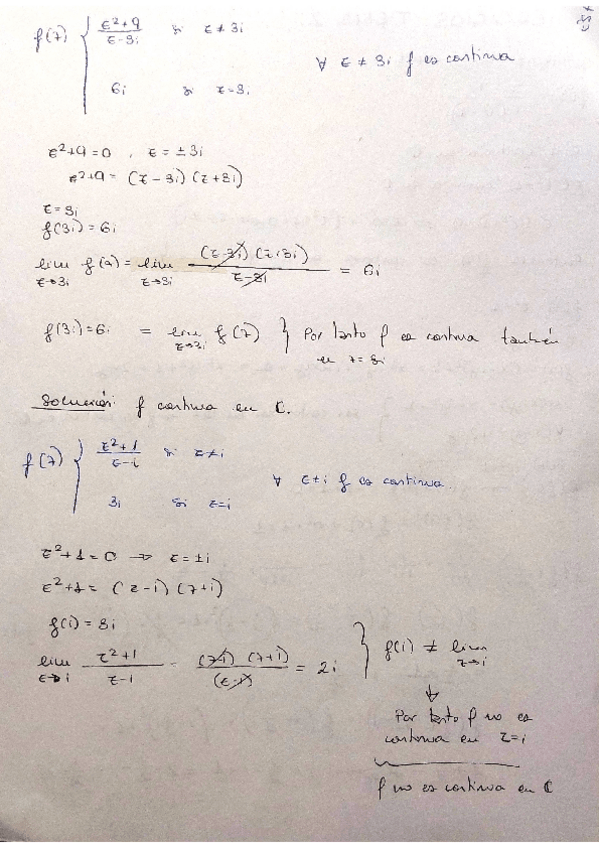 f(z) { z²+9 / z-3i si z ≠ 3i
∀ z ≠ 3i f es continua
6i si z=3i
z²+9=0 , z = ±3i
z²+9= (z-3i) (z+3i)
z=3i
f(3i)=6i
lim z→3i f(z) = lim z→3i (z-3i) (z+3i) / z-3i = 6i
f(3i)=6i = lim z→3i f(z) } Por tanto f es continua también
en z=3i
Solución: f continua en ℂ.
f(z) { z²+1 / z-i si z≠i
∀ z≠i f es continua.
3i si z=i
z²+1=0 → z=±i
z²+1= (z-i) (z+i)
f(i)=3i
lim z→i z²+1 / z-i = (z-i) (z+i) / (z-i) = 2i } f(i) ≠ lim z→i
↓
Por tanto f no es
continua en z=i
f no es continua en ℂ